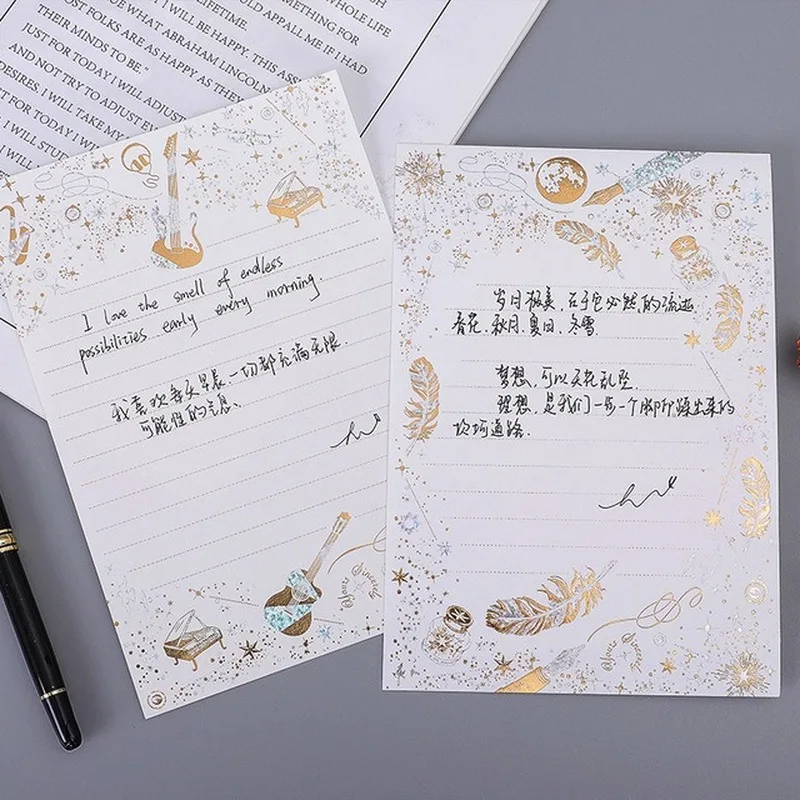 OST FOLKS ARE AS HAPPY AS THEY
THEIR MINDS TO BE."
JUST FOR TODAY I WILL ADJUST
AND NOT TRY TO ADJUST EV
DESIRES. I WILL TAKE MY
FOR TODAY I W
I WILL STUD
UE WHAT ABRAHAM LINCOLN
I WILL BE HAPPY. THIS ASS
OULD APPALL ME IF I HAD
SOMETHING FOR
WHOLE LIFE
I love the smell of endless
possibilities early every morning.
我喜欢每天早晨,一切都充满无限
可能性的气息.
岁月极美,在于它必然的流逝.
春花、秋月、夏日、冬雪.
梦想,可以天花乱坠.
理想,是我们一步一个脚印踩出来的
坎坷道路.